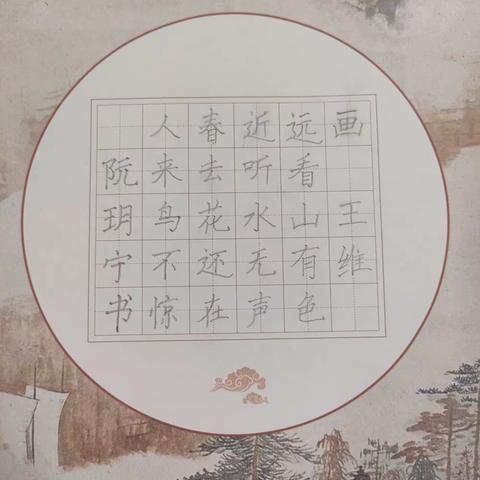 画
王维
远看山有色
近听水无声
春去花还在
人来鸟不惊
阮玥宁书